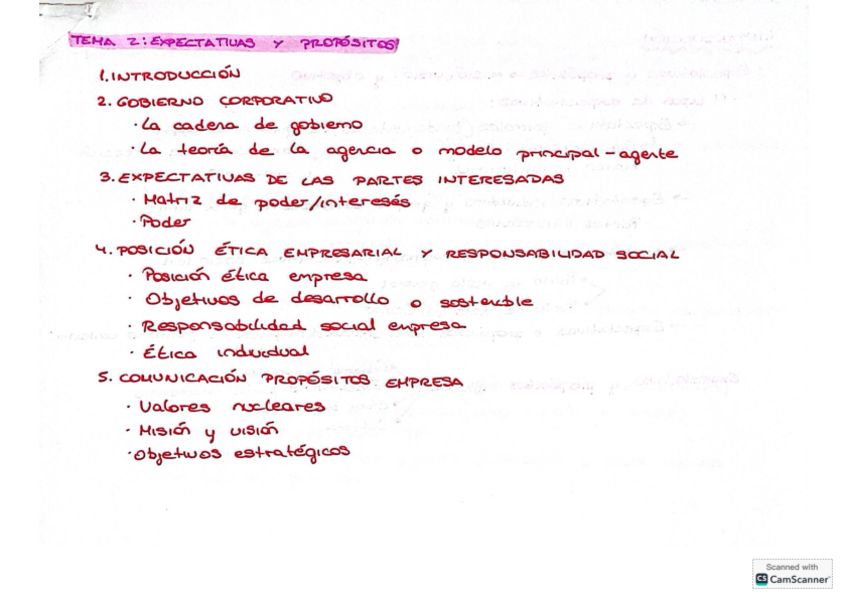 TEMA 2: EXPECTATIVAS Y PROPÓSITOS
1. INTRODUCCIÓN
2. GOBIERNO CORPORATIVO
· La cadena de gobierno
· La teoría de la agencia o modelo principal-agente
3. EXPECTATIVAS DE LAS PARTES INTERESADAS
· Matriz de poder/interesés
· Poder
4. POSICIÓN ÉTICA EMPRESARIAL Y RESPONSABILIDAD SOCIAL
· Posición ética empresa
· Objetivos de desarrollo o sostenible
· Responsabilidad social empresa
· Ética individual
5. COMUNICACIÓN PROPÓSITOS EMPRESA
· Valores nucleares
· Misión y visión
· Objetivos estratégicos
Scanned with
CS CamScanner